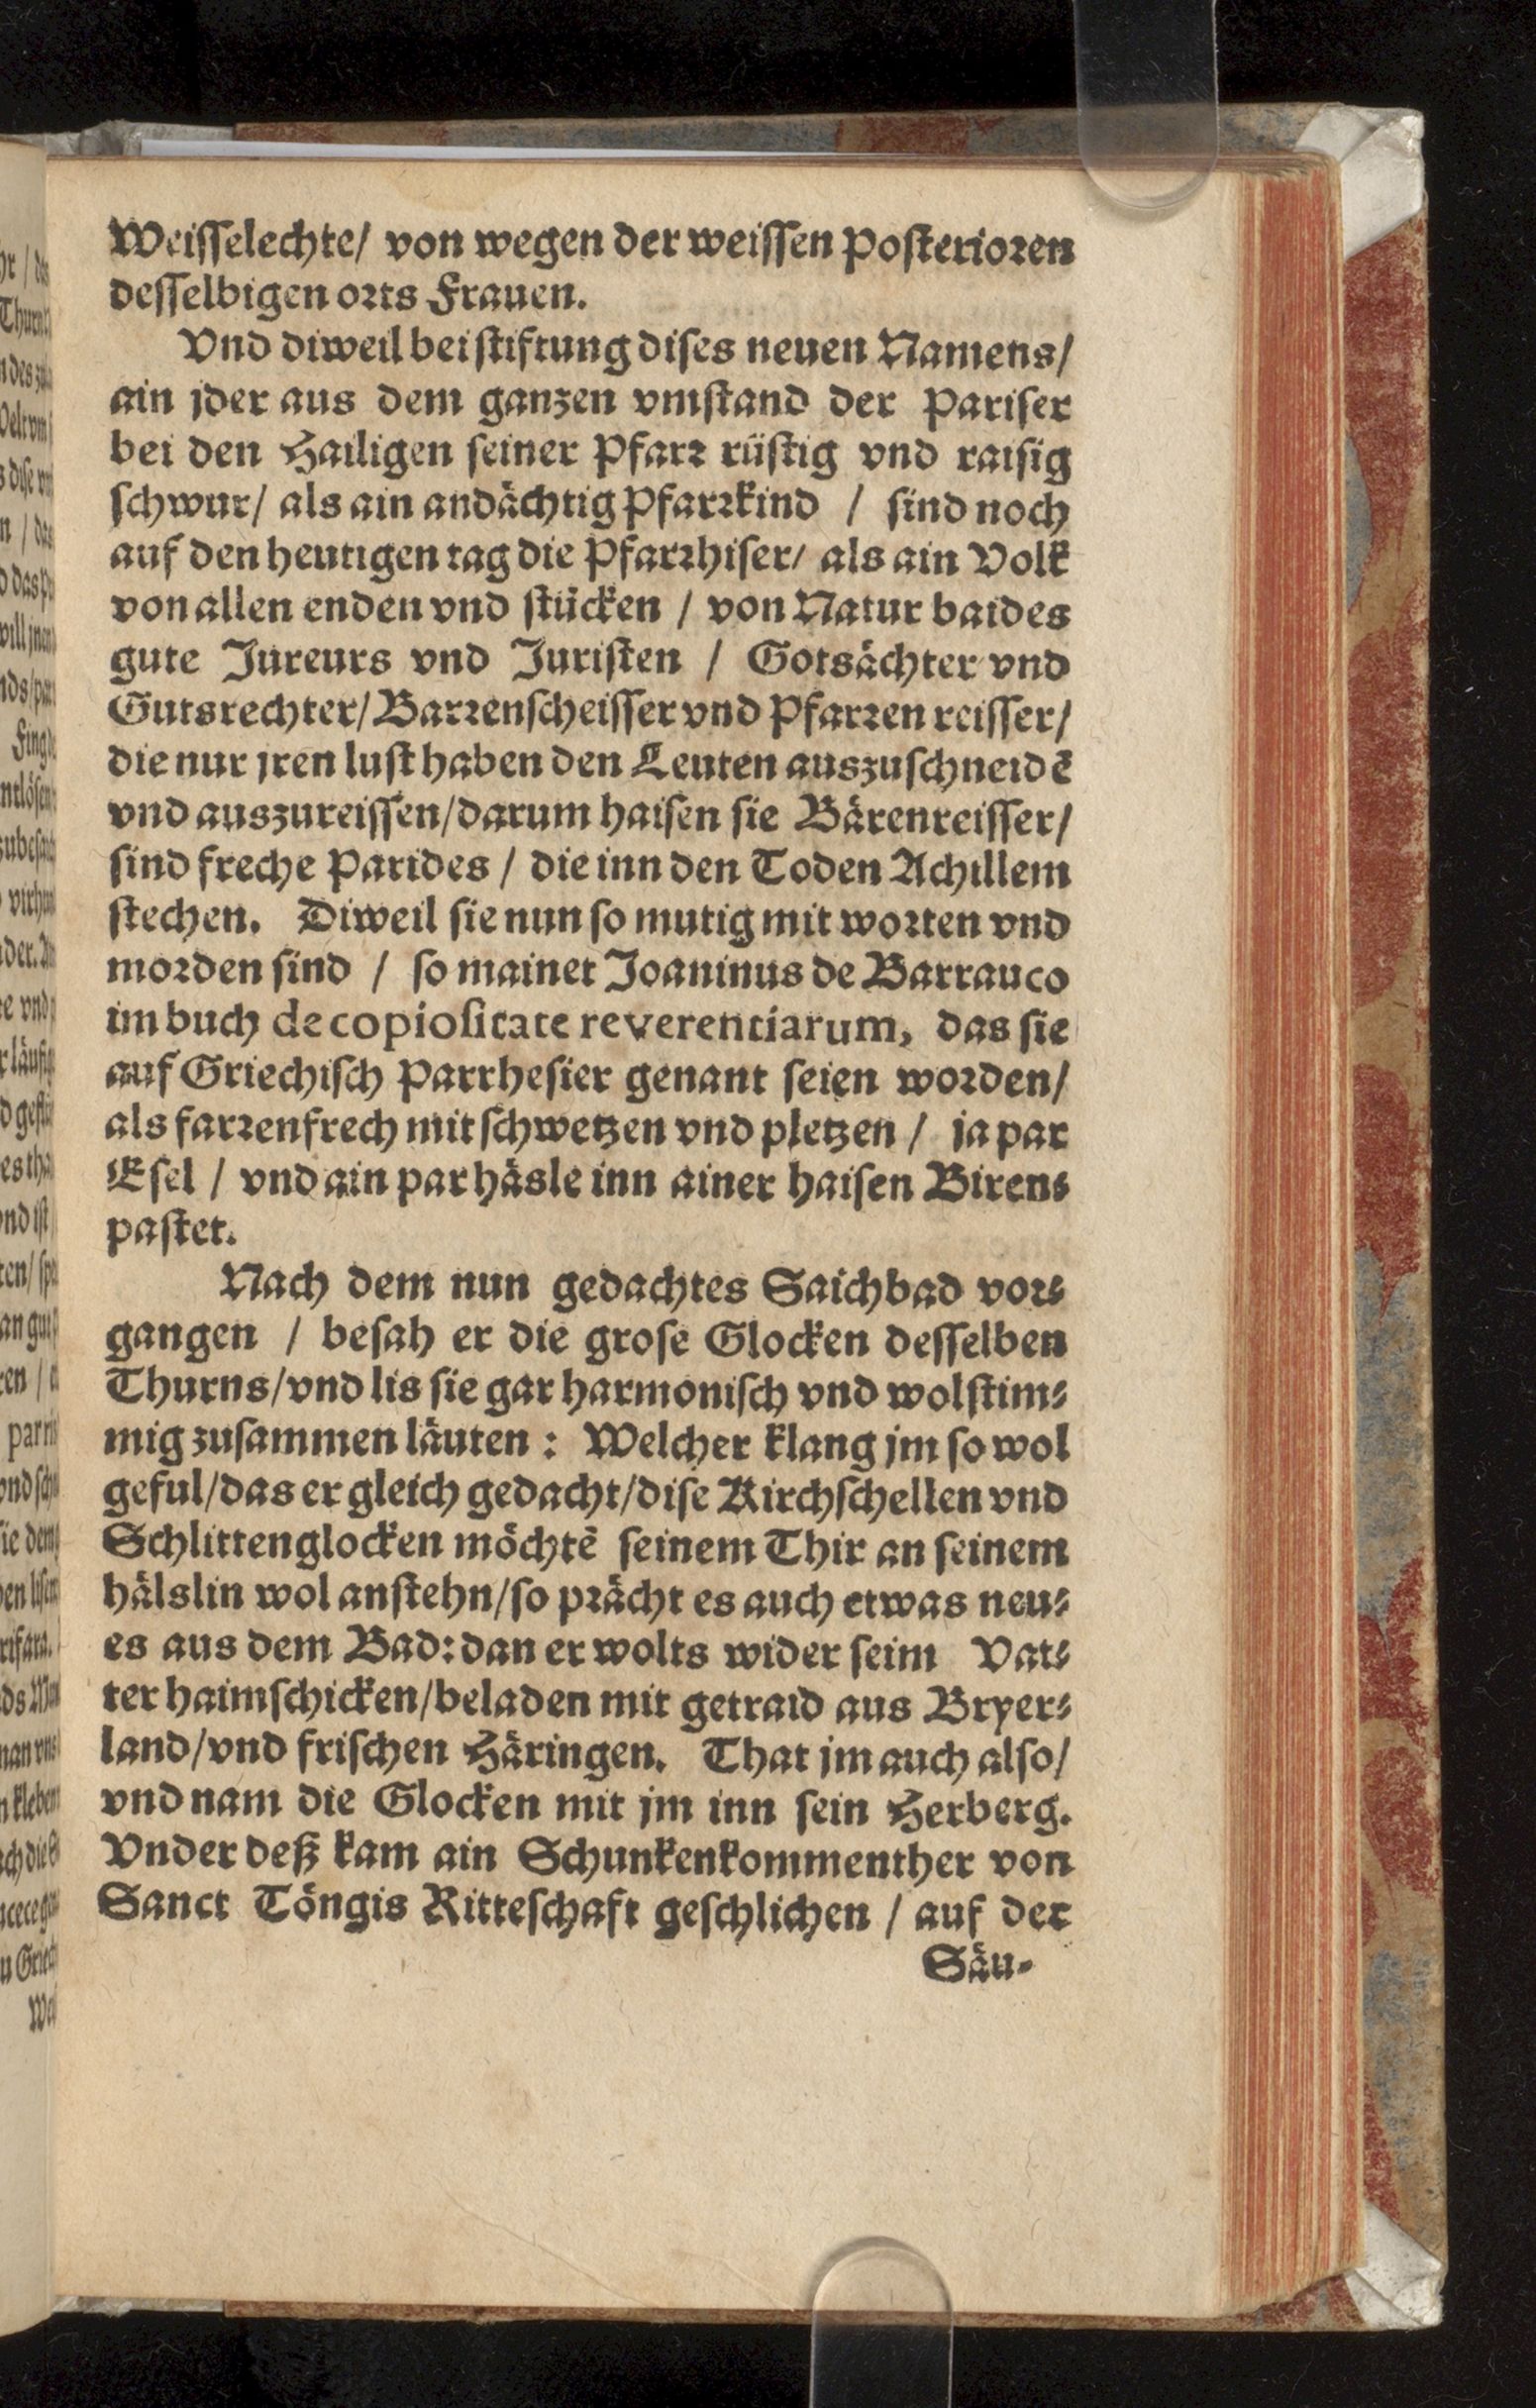 Weiſſelechte/ von wegen der weiſſen Poſterioren
deſſelbigen orts Frauen.
Vnd diweil bei ſtiftung diſes neuen Namens/
ain jder aus dem ganzen vmſtand der Pariſer
bei den Hailigen ſeiner Pfarr rüſtig vnd raiſig
ſchwur/ als ain andächtig Pfarrkind / ſind noch
auf den heutigen tag die Pfarrhiſer/ als ain Volk
von allen enden vnd ſtücken / von Natur baides
gute Jureurs vnd Juriſten / Gotsächter vnd
Gutsrechter/ Barrenſcheiſſer vnd Pfarren reiſſer/
die nur jren luſt haben den Leuten auszuſchneidē
vnd auszureiſſen/ darum haiſen ſie Bärenreiſſer/
ſind freche Parides / die inn den Toden Achillem
ſtechen. Diweil ſie nun ſo mutig mit worten vnd
morden ſind / ſo mainet Joaninus de Barrauco
im buch de copioſitate reverentiarum, das ſie
auf Griechiſch Parrheſier genant ſeien worden/
als farrenfrech mit ſchwetzen vnd pletzen / ja par
Eſel / vnd ain par häsle inn ainer haiſen Biren⸗
paſtet.
Nach dem nun gedachtes Saichbad vor⸗
gangen / beſah er die groſe Glocken deſſelben
Thurns/ vnd lis ſie gar harmoniſch vnd wolſtim⸗
mig zuſammen läuten : Welcher klang jm ſo wol
geful/ das er gleich gedacht/ diſe Kirchſchellen vnd
Schlittenglocken möchtē ſeinem Thir an ſeinem
hälslin wol anſtehn/ ſo prächt es auch etwas neu⸗
es aus dem Bad: dan er wolts wider ſeim Vat⸗
ter haimſchicken/ beladen mit getraid aus Bryer⸗
land/ vnd friſchen Häringen. That jm auch alſo/
vnd nam die Glocken mit jm inn ſein Herberg.
Vnder deß kam ain Schunkenkommenther von
Sanct Töngis Ritteſchaft geſchlichen / auf der
Säu⸗